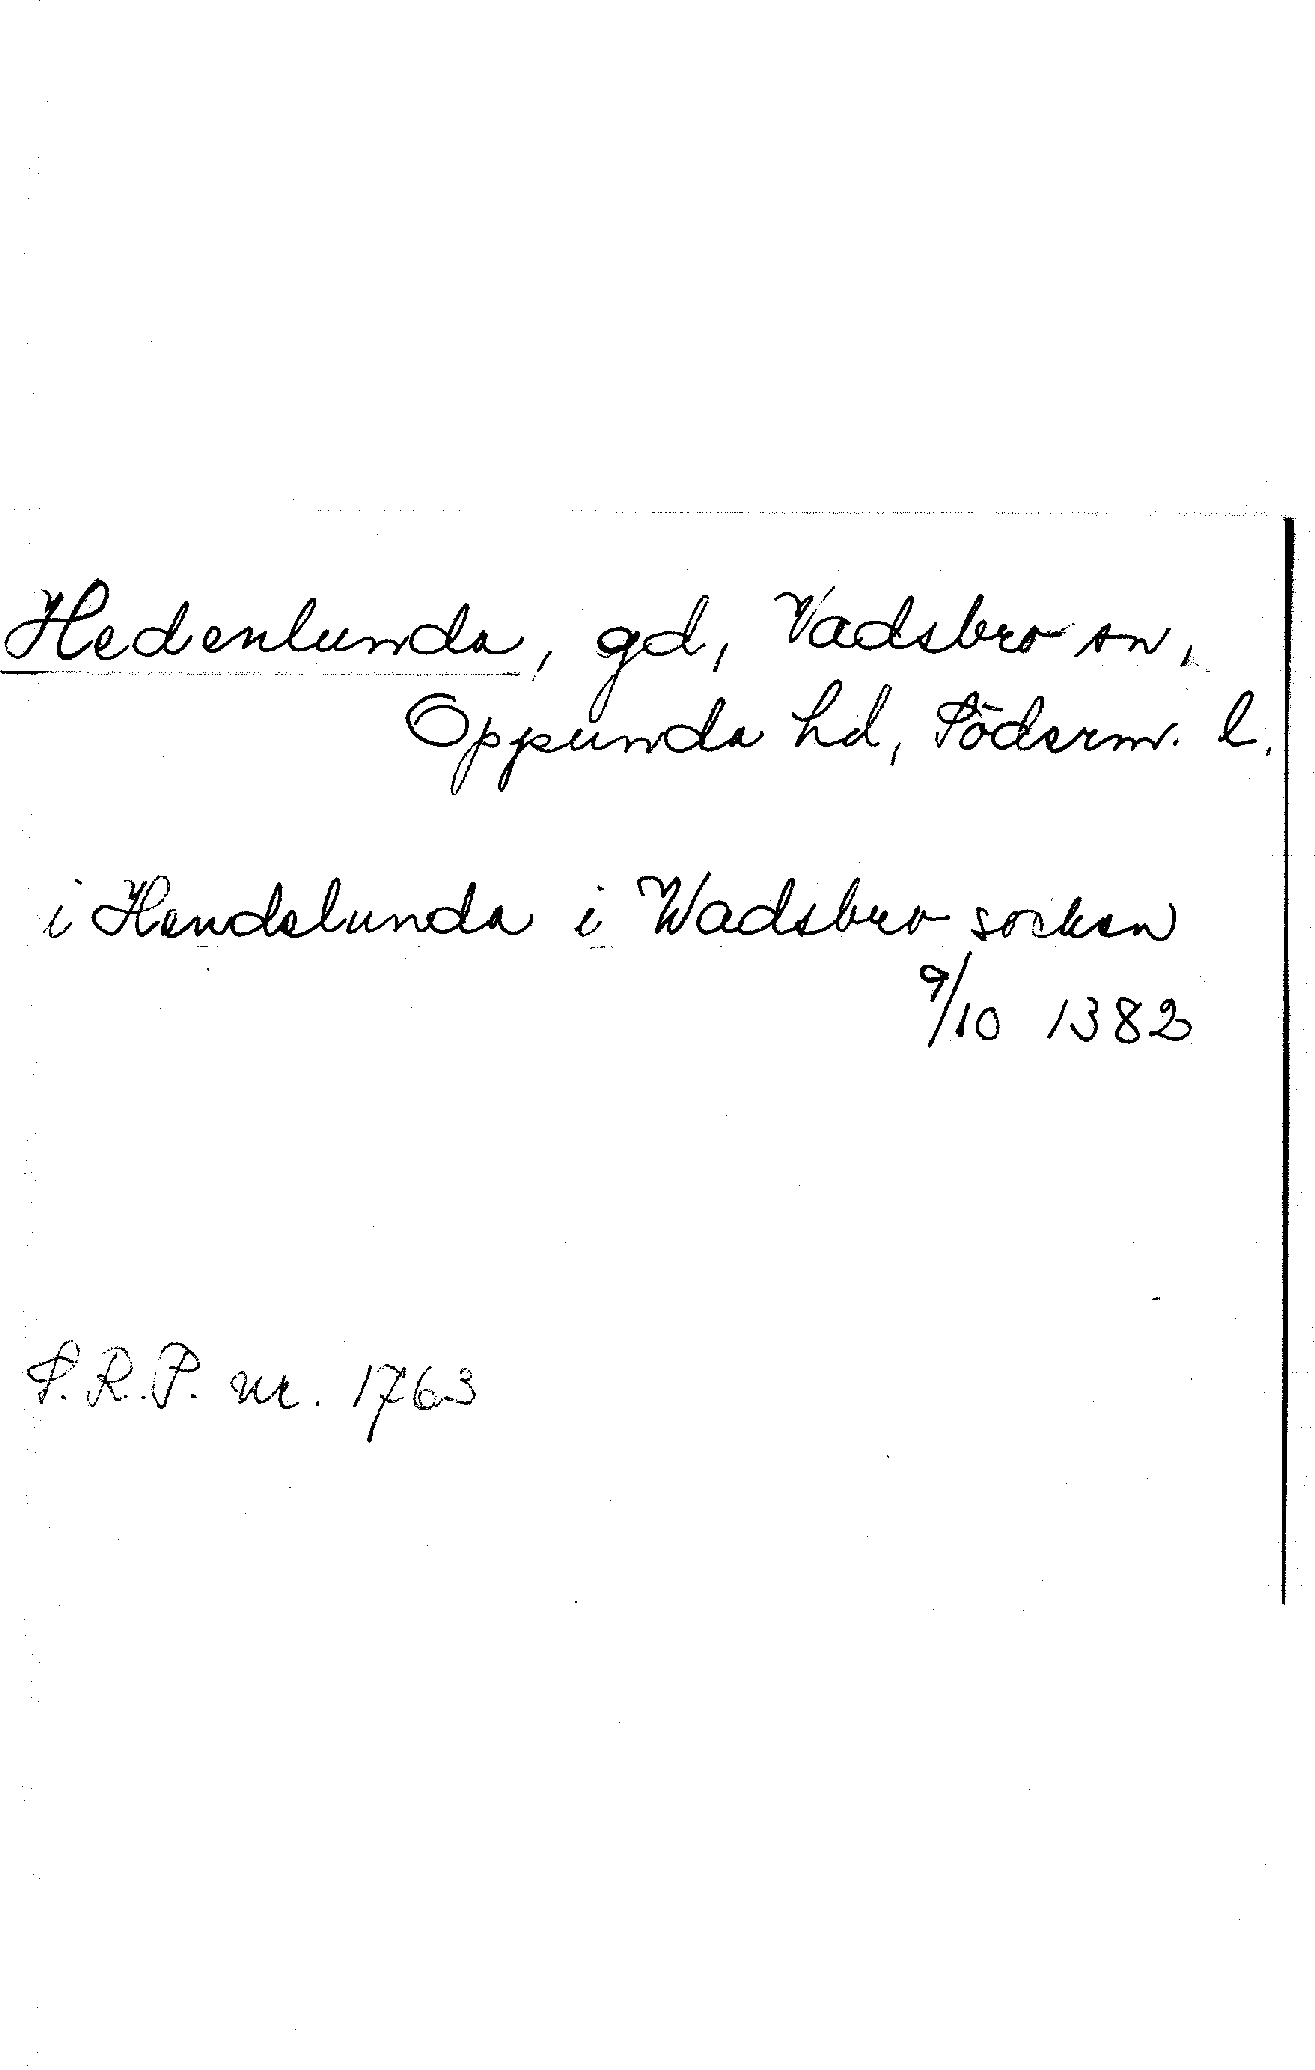 Hedenlunda, gd, Vadsbro sn,
Oppunda hd, Söderm. l.
i Hendelunda i Wadsbro socken
9/10 1382
S.R.P. nr. 1763